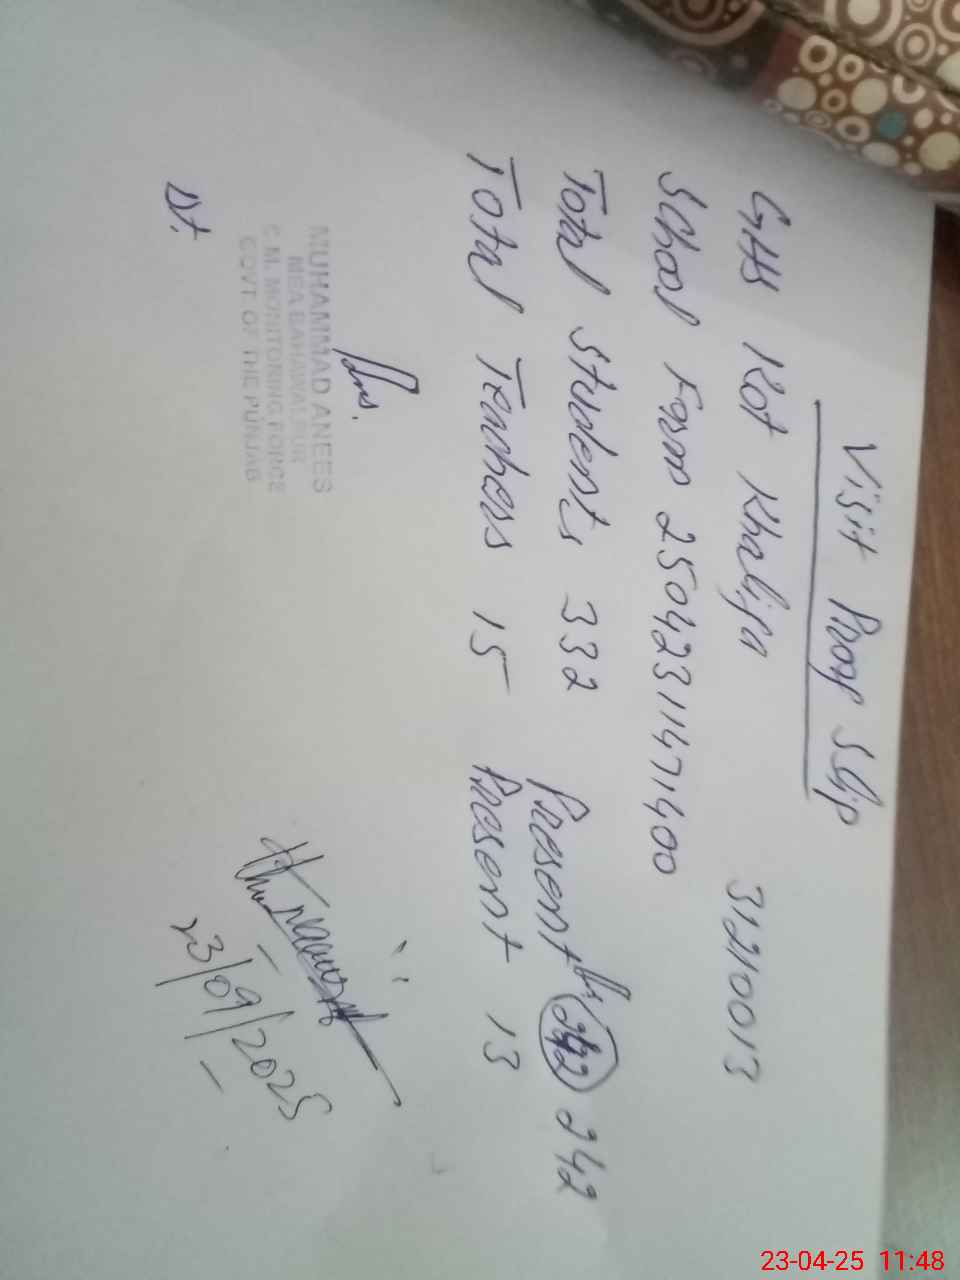 Visit Proof Slip
GHS Kot Khalifa 31210013
School Form 2504231147400
Total Students 332 Present 242 242
Total Teachers 15 Present 13
MUHAMMAD ANEES
MEA BAHAWALPUR
C.M. MONITORING FORCE
GOVT OF THE PUNJAB
Dt.
23/09/2025
23-04-25 11:48